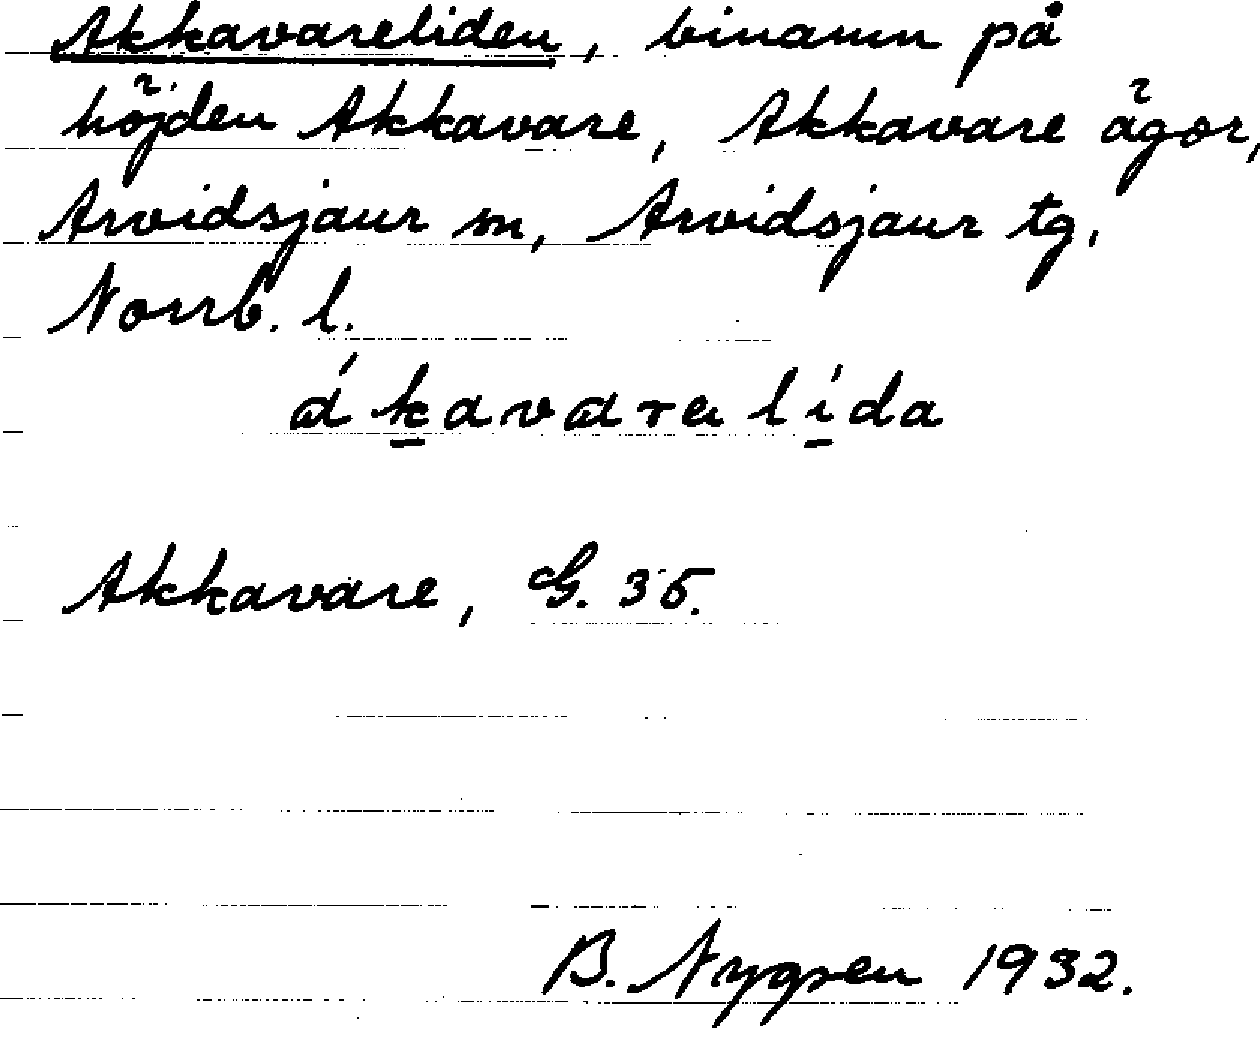 Akkavareliden, binamn på
höjden Akkavare, Akkavare ägor,
Arvidsjaur sn, Arvidsjaur tg.
Norrb. l.
ákavaralída
Akkavare, G. 35.
B. Nygren 1932.